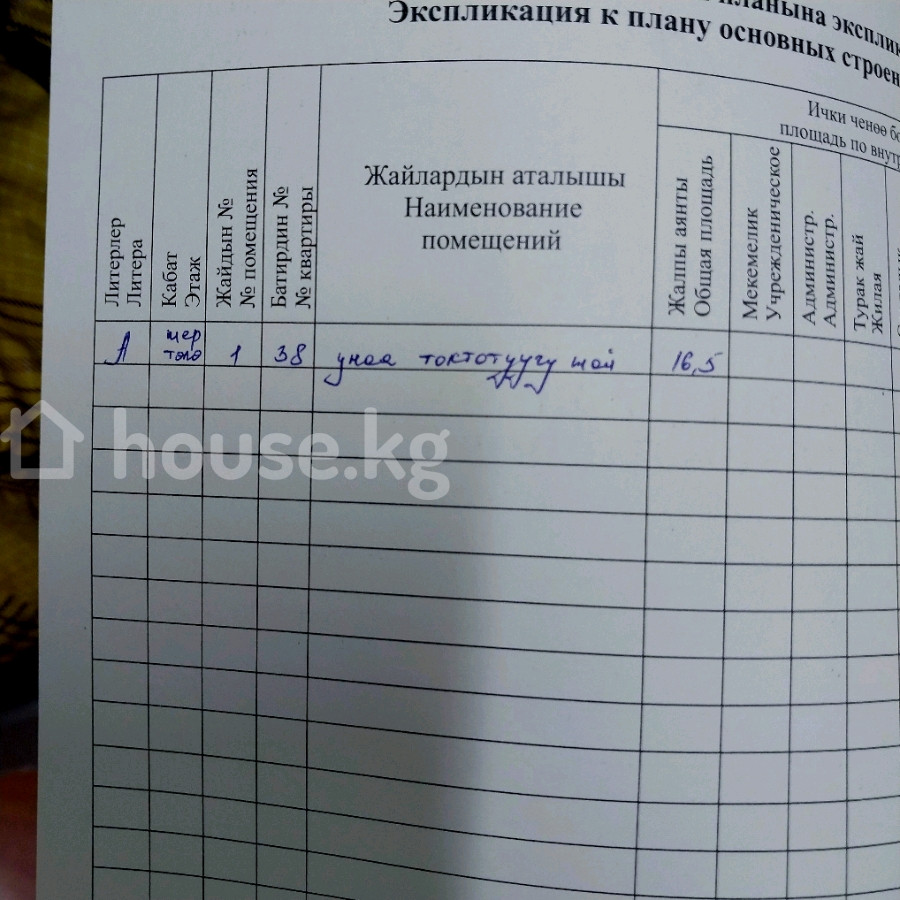 планына экспли
Экспликация к плану основных строен
Литерлер
Литера
Кабат
Этаж
Жайдын №
№ помещения
Батирдин №
№ квартиры
Жайлардын аталышы
Наименование
помещений
Ички ченөө бо
площадь по внутр
Жалпы аянты
Общая площадь
Мекемелик
Учрежденическое
Администр.
Администр.
Турак жай
Жилая
А
жер
толо
1
38
унаа токтотуучу жай
16,5
house.kg